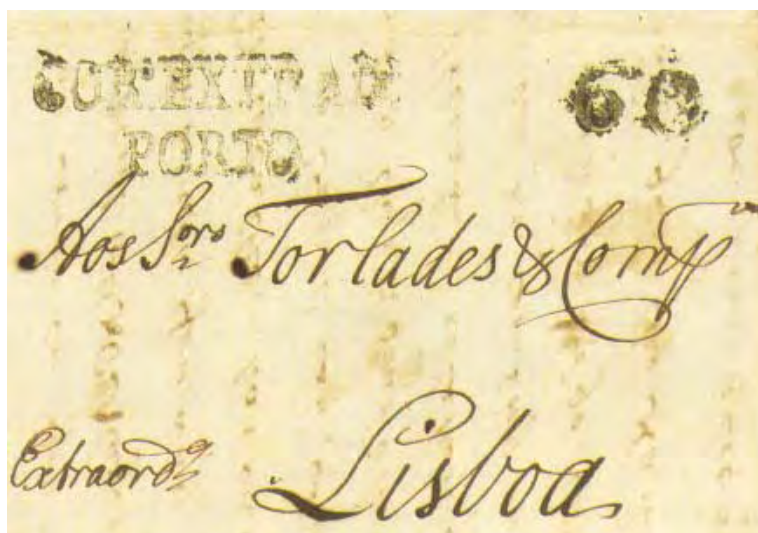 COR.EXTRAO 60
PORTO
Aos S.ores Torlades & Comp.
Extraord.o Lisboa